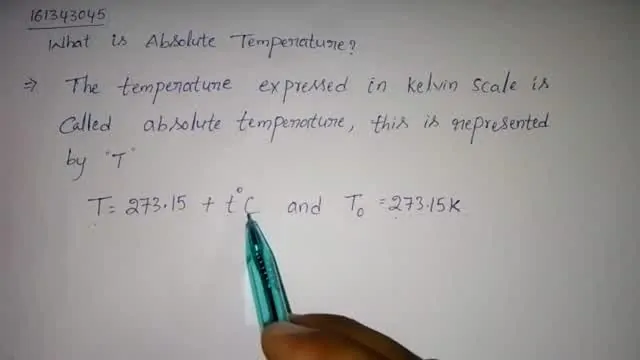 161343045
What is Absolute Temperature?
⇒ The temperature expressed in kelvin scale is
Called absolute temperature, this is represented
by "T"
T = 273.15 + t°C and T₀ = 273.15K